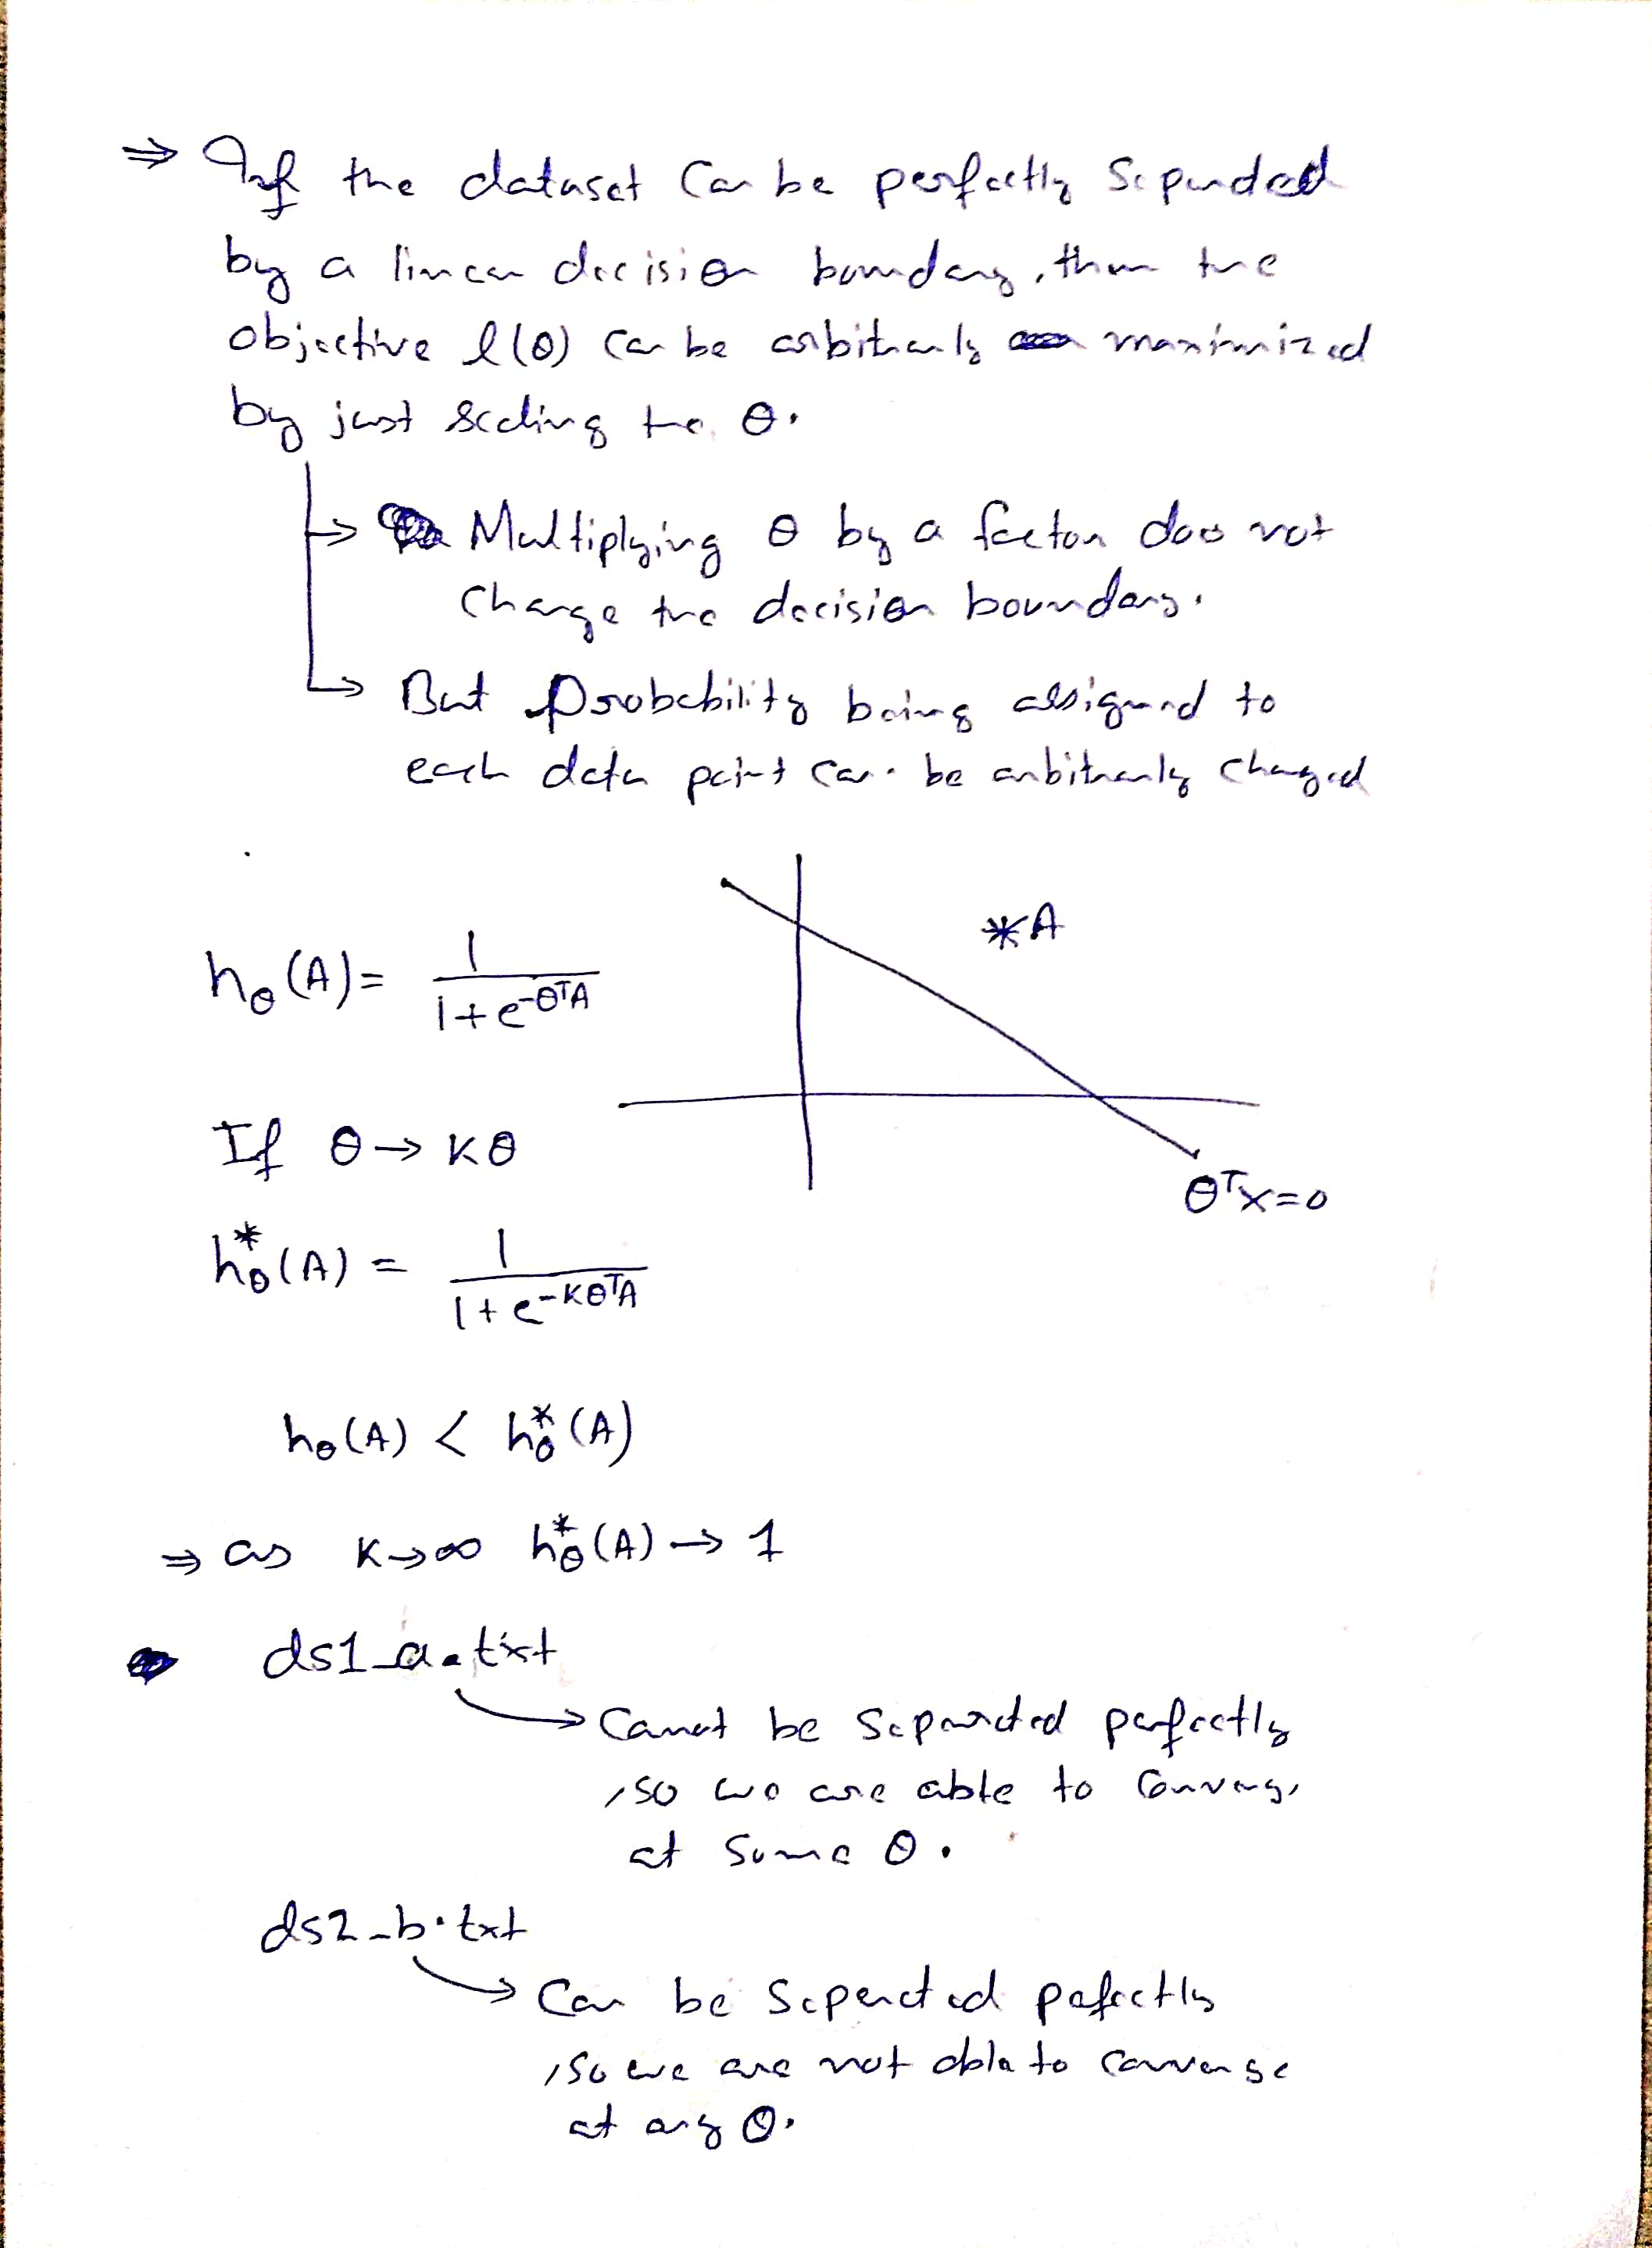 ⇒ If the dataset can be perfectly seperated
by a linear decision boundary, then the
objective l(θ) can be arbitrarily maximized
by just scaling the θ.
→ Multiplying θ by a factor does not
change the decision boundary.
→ But probability being assigned to
each data point can be arbitrarily changed
*A
h_θ(A) = 1/(1+e^(-θ^T A))
If θ → Kθ
θ^T x = 0
h*_θ(A) = 1/(1+e^(-Kθ^T A))
h_θ(A) < h*_θ(A)
⇒ as K→∞ h*_θ(A) → 1
ds1_a.txt
→ Cannot be seperated perfectly
, so we are able to converge
at some θ.
ds2_b.txt
→ Can be seperated pefectly
, so we are not able to converge
at any θ.